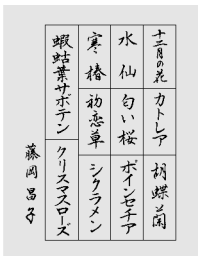 十二月の花
カトレア
胡蝶蘭
水仙
匂い桜
ポインセチア
寒椿
初恋草
シクラメン
蝦蛄葉サボテン
クリスマスローズ
藤岡昌子